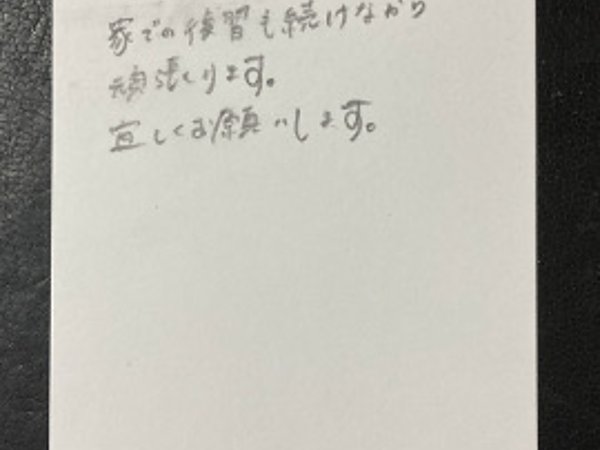 家での復習も続けながら
頑張ります。
宜しくお願いします。